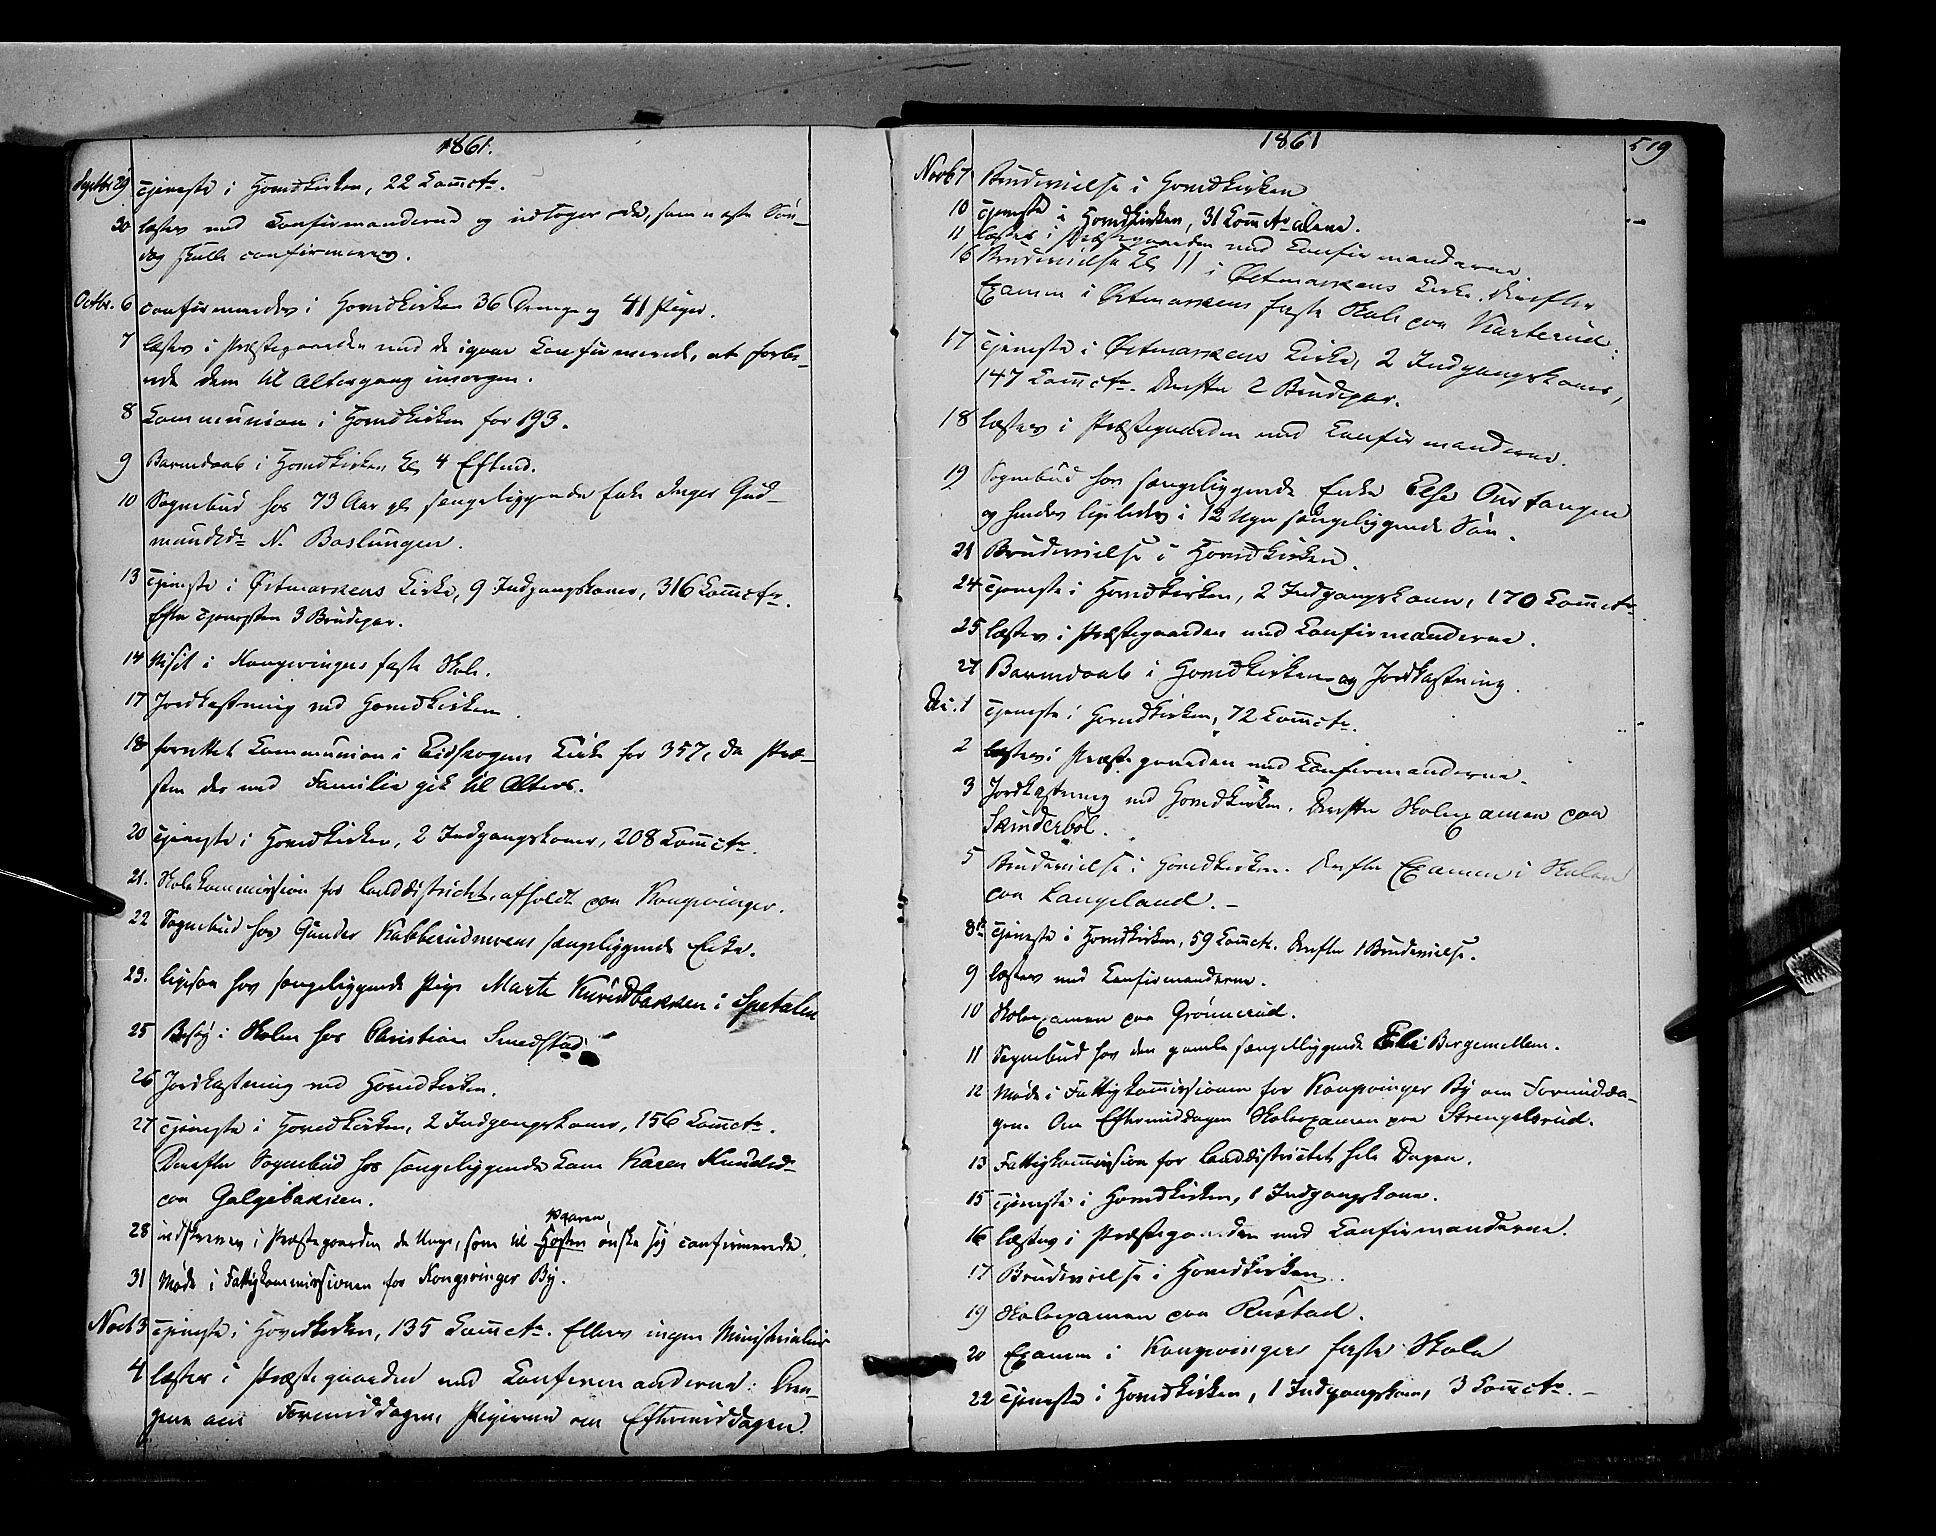 1861.
Septbr 29 Tjeneste i Hovedkirken, 22 Commctr.
30 læstes med Confirmanderne og udtoges de, som næste Søn-
dag skulle confirmeres.
Octbr. 6 confirmeredes i Hovedkirken 36 Drenge og 41 Piger.
7 læstes i Præstegaarden med de igaar Confirmerede, at forbe-
rede dem til Altergang imorgen.
8 Communion i Hovedkirken for 193.
9 Barnedaab i Hovedkirken Kl. 4 Eftmd.
10 Sognebud hos 73 Aar gl. sængeliggende Enke Inger Gud-
mundsdr N. Baslungen.
13 Tjeneste i Østmarkens Kirke, 9 Indgangskoner, 316 Commctr.
Efter Tjenesten 3 Brudepar.
14 Visit i Kongsvingers faste Skole.
17 Jordkastning ved Hovedkirken.
18 forrettet Communion i Eidskogens Kirke for 357, da Præ-
sten der med Familie gik til Alters.
20 Tjeneste i Hovedkirken, 2 Indgangskoner, 208 Commctr.
21. Skolekommission for Landdistrictet, afholdt paa Kongsvinger.
22 Sognebud hos Gunder Kabberudmoens sængeliggende Enke.
23. ligesaa hos sængeliggende Pige Marte in Spetalen
25 Besøg i Skolen hos Christian Smedstad
26 Jordkastning ved Hovedkirken.
27 Tjeneste i Hovedkirken, 2 Indgangskoner, 156 Commctr.
Derefter Sognebud hos sængeliggende Kone Karen Knudsdr
paa Galgebakken.
Vaaren
28 indskreves i Præstegaarden de Unge, som til Høsten ønske sig confirmerede.
31 Møde i Fattigkommissionen for Kongsvinger By.
Novb 3 Tjeneste i Hovedkirken, 135 Commctr. Ellers ingen Ministerialier
4 læstes i Præstegaarden med Confirmanderne: Dren-
gene om Formiddagen, Pigerne om Eftermiddagen.
1861
519
Novb 7 Brudevielse i Hovedkirken
10 Tjeneste i Hovedkirken, 31 Commctr alene.
11 læstes i Præstegaarden med Confirmanderne.
16 Brudevielse Kl. 11 i Østmarkens Kirke. Derefter
Examen i Østmarkens faste Skole paa Karterud.
17 Tjeneste i Østmarkens Kirke, 2 Indgangskoner,
147 Commctr. Derefter 2 Brudepar.
18 læstes i Præstegaarden med Confirmanderne.
19 Sognebud hos sængeliggende Enke Else Ourtangen
og hendes ligeledes i 12 Uger sængeliggende Søn.
21 Brudevielse i Hovedkirken.
24 Tjeneste i Hovedkirken, 2 Indgangskoner, 170 Commctr
25 læstes i Præstegaarden med Confirmanderne.
27 Barnedaab i Hovedkirken og Jordkastning.
Dec. 1 Tjeneste i Hovedkirken, 72 Commctr.
2 læstes i Præstegaarden med Confirmanderne.
3 Jordkastning ved Hovedkirken. Derefter Skoleexamen paa
Skinderbøl.
5 Brudevielse i Hovedkirken. Derefter Examen i Skolen
paa Langeland. –
8de Tjeneste i Hovedkirken, 59 Commctr. Derefter 1 Brudevielse.
9 læstes med Confirmanderne.
10 Skoleexamen paa Grønnerud.
11 Sognebud hos den gamle sængeliggende Eli Bergemellem.
12 Møde i Fattigkommissionen for Kongsvinger By om Formidda-
gen. Om Eftermiddagen Skoleexamen paa Strengelsrud.
13 Fattigkommission for Landdistrictet hele Dagen.
15 Tjeneste i Hovedkirken, 1 Indgangskone.
16 læstes i Præstegaarden med Confirmanderne.
17 Brudevielse i Hovedkirken.
19 Skoleexamen paa Rustad.
20 Examen i Kongsvinger faste Skole
22 Tjeneste i Hovedkirken, 1 Indgangskone, 3 Commctr. –